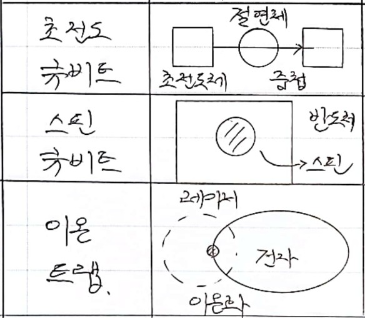 초전도
큐비트
절연체
초전도체
중첩
스핀
큐비트
반도체
스핀
이온
트랩.
레이저
전자
이온화